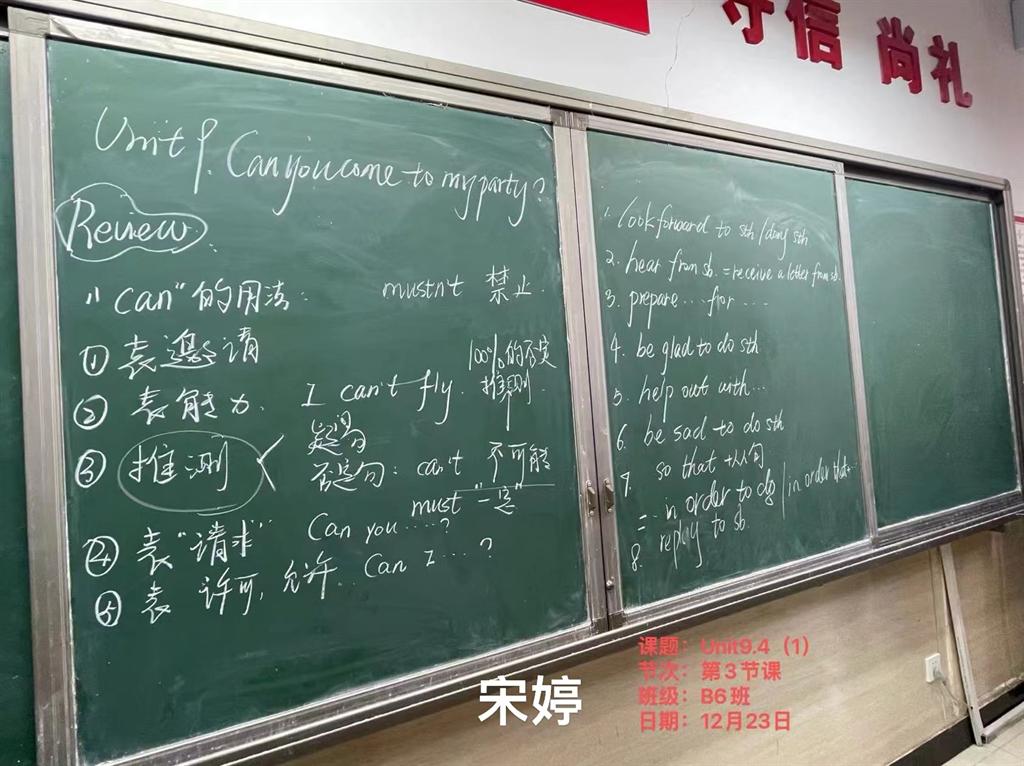 守信 尚礼
Unit 9. Can you come to my party?
Review
"can"的用法: mustn't 禁止.
① 表邀请
② 表能力. I can't fly. 100%的否定推测.
③ 推测 < 疑问句
否定句: can't 不可能
must "一定"
④ 表"请求" Can you ……?
⑤ 表 许可, 允许... Can I …?
1. look forward to sth/doing sth
2. hear from sb. = receive a letter from sb.
3. prepare … for …
4. be glad to do sth
5. help out with…
6. be sad to do sth
7. so that +从句
= in order to do / in order that+…
8. reply to sb.
课题：Unit9.4（1）
节次：第3节课
班级：B6班
日期：12月23日
宋婷